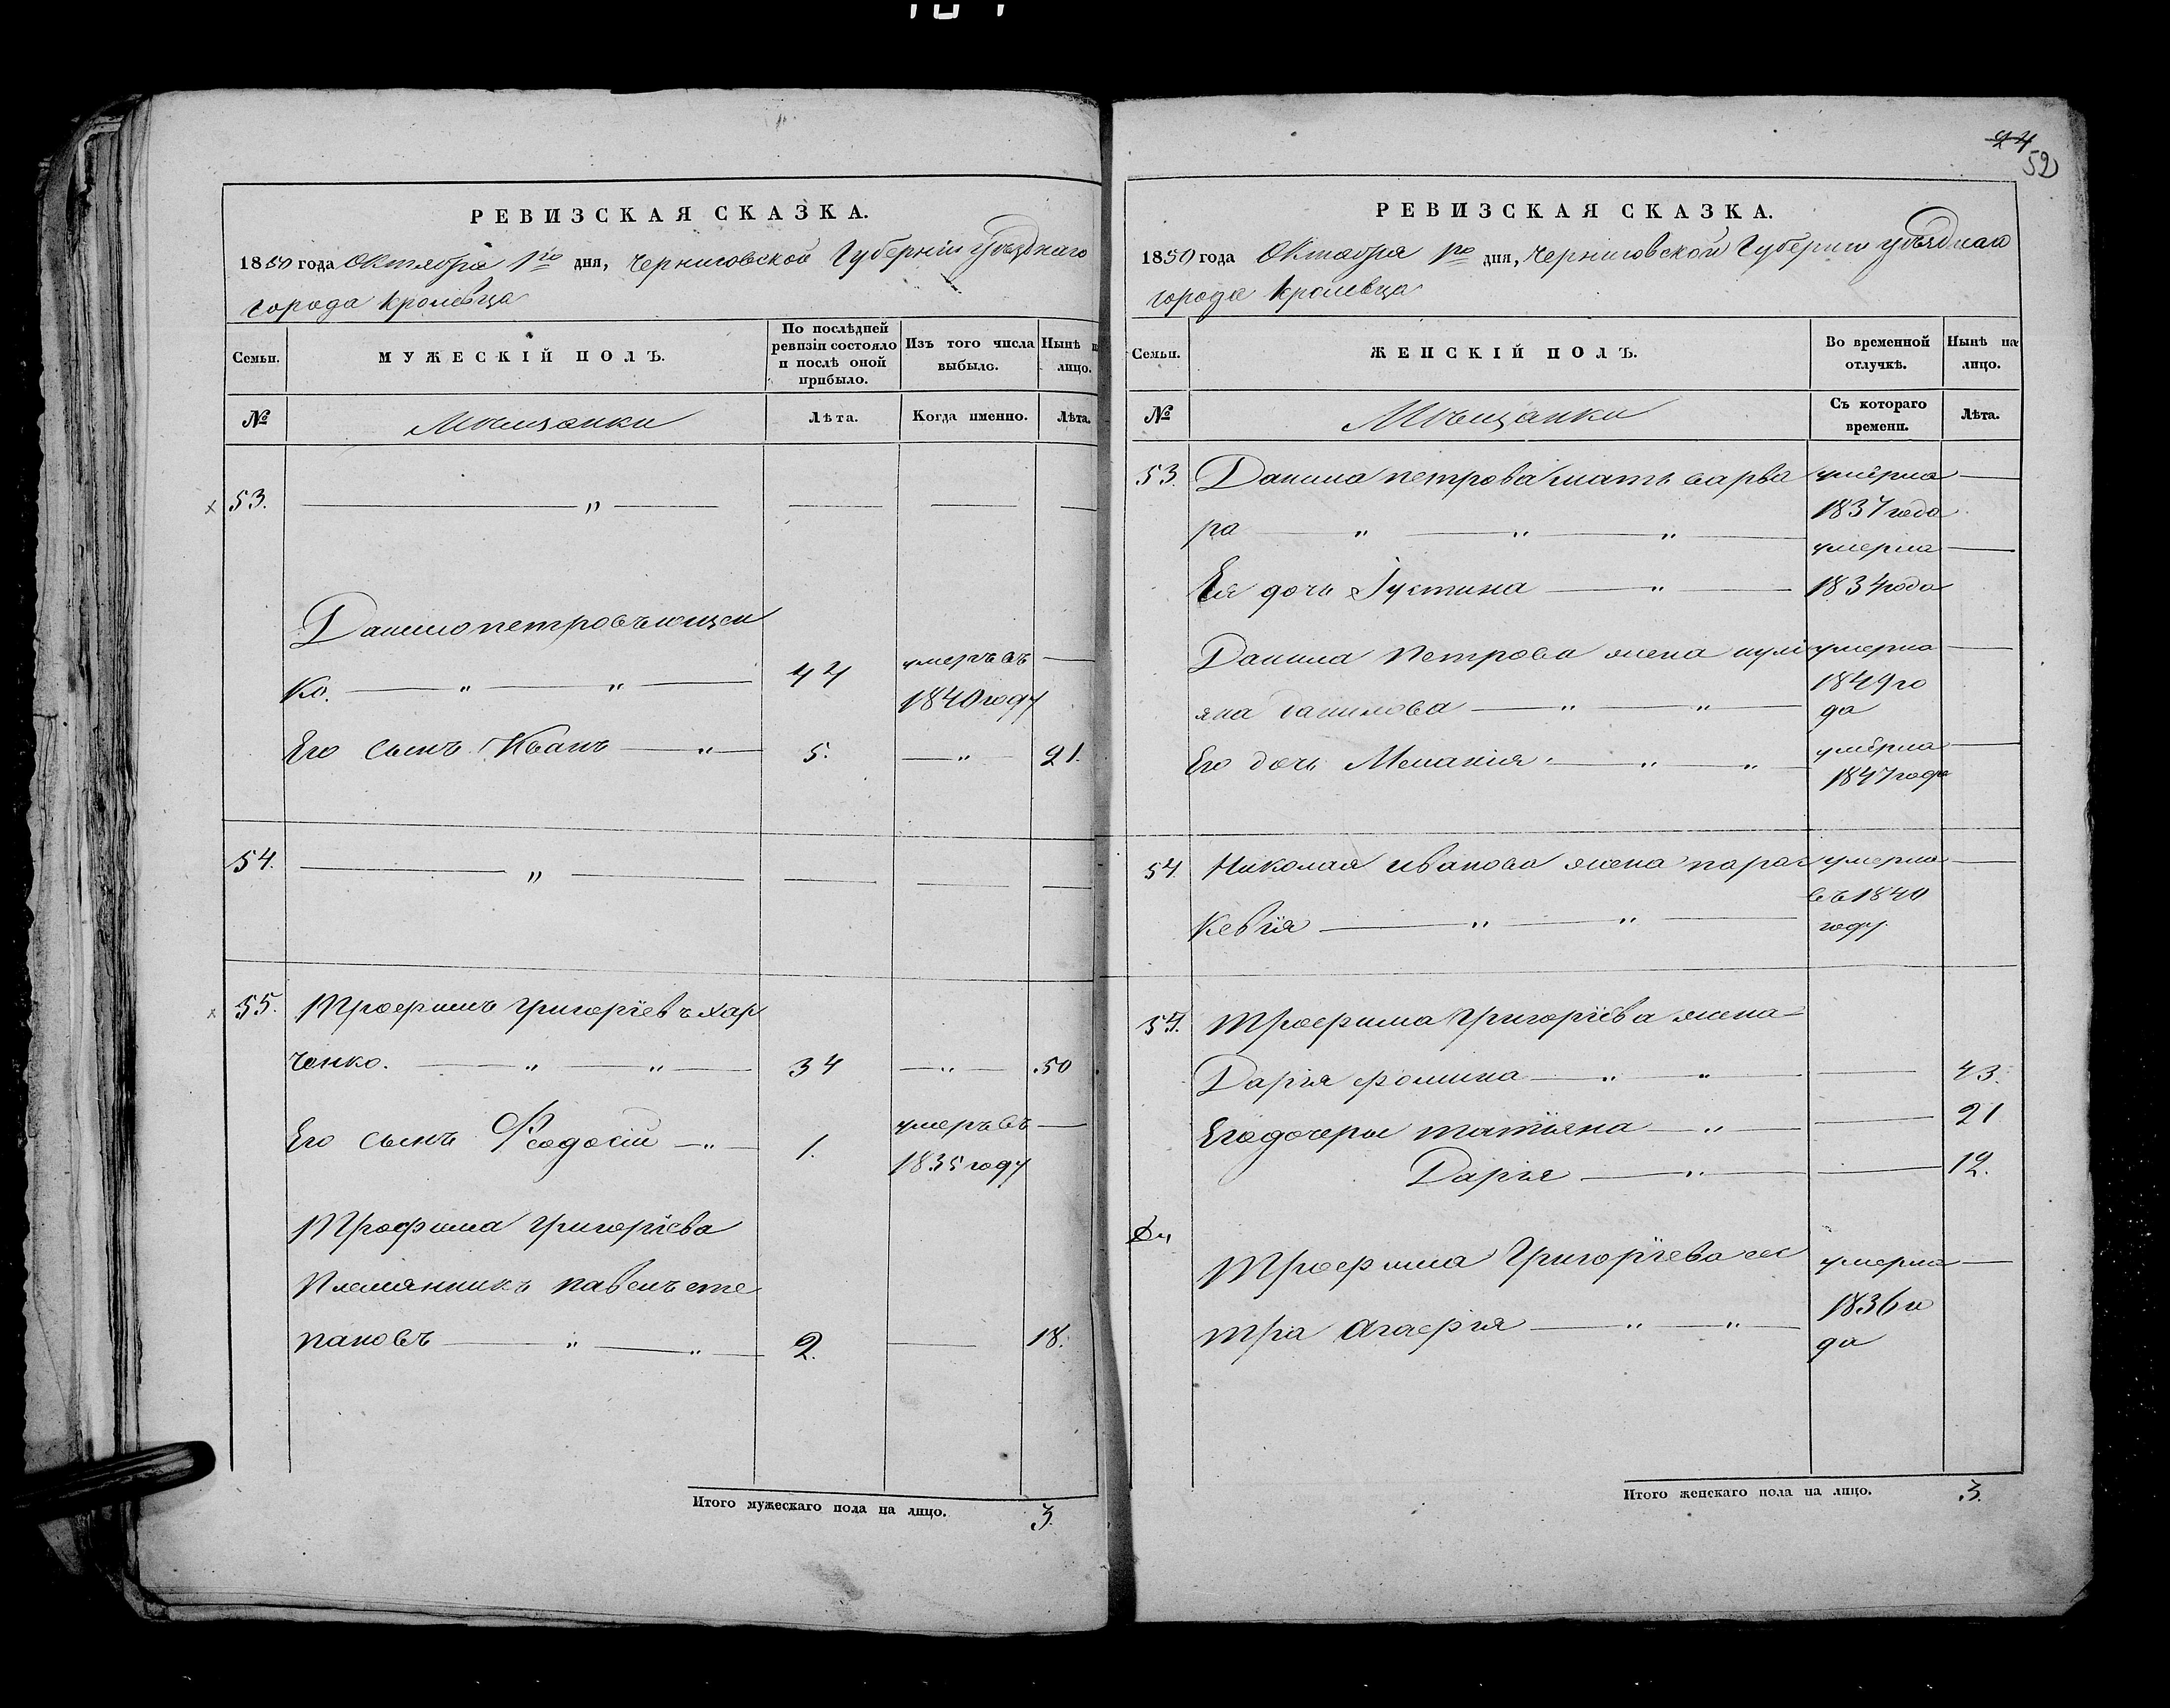 24
52
РЕВИЗСКАЯ СКАЗКА.
1850 года Октября 1го дня, Черниговской Губерніи уѣзднаго
города Кролевца
Семьи.
МУЖЕСКІЙ ПОЛЪ.
По послѣдней ревизіи состояло и послѣ оной прибыло.
Изъ того числа выбыло.
Нынѣ н лицо.
№
Мѣщанки
Лѣта.
Когда именно.
Лѣта.
53. — " —
Данило петровъ ющен
ко. — " — " — 44 умеръ въ —
1840 году
Его сынъ Иванъ — " — 5. — " — 21.
54. — " —
55. Трофимъ Григоріевъ хар
ченко. — " — " — 34 — " — 50
Его сынъ Феодосій — " — 1. умеръ въ —
1835 году
Трофима Григоріева
Племянникъ павелъ сте
пановъ — " — " — 2. — 18.
Итого мужескаго пола на лицо. 3.
РЕВИЗСКАЯ СКАЗКА.
1850 года Октября 1го дня, Черниговской Губерніи уѣзднаго
города Кролевца
Семьи.
ЖЕНСКІЙ ПОЛЪ.
Во временной отлучкѣ.
Нынѣ на лицо.
№
Мѣщанки
Съ котораго времени.
Лѣта.
53. Данила петрова мать варва умерла —
ра — " — " — " — 1837 года
умерла —
Ея дочь Іустина — " — 1834 года
Данила Петрова жена улі умерла —
1849 го
яна данилова — " — " — да
Его дочь Меланія — " — " — умерла —
1847 года
54. Николая иванова жена парас умерла —
въ 1840
кевія — " — " — году
55. Трофима Григоріева жена
Дарія фомина — " — " — 43.
Его дочери татіяна — " — 21
Дарья — " — 12.
Трофима Григоріева сес умерла —
1836 го
тра Агафія — " — " — да
Итого женскаго пола на лицо. 3.